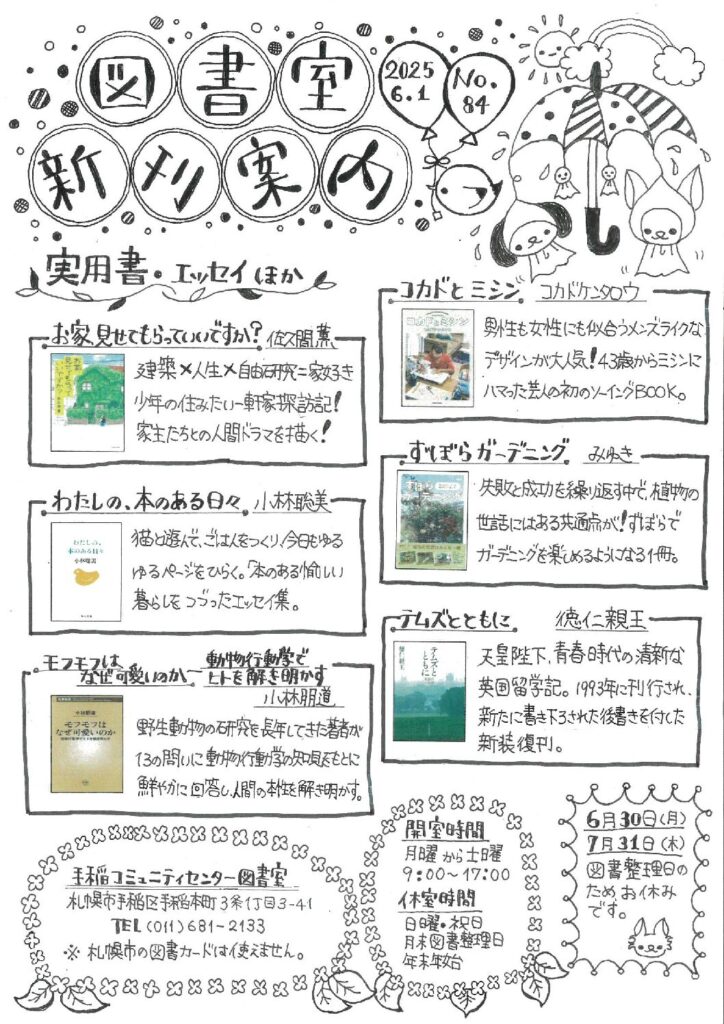 図書室
新刊案内
2025
6.1
No.
84
実用書・エッセイほか
お家、見せてもらっていいですか? 佐久間薫
建築×人生×自由研究=家好き
少年の住みたい一軒家探訪記!
家主たちとの人間ドラマを描く!
わたしの、本のある日々 小林聡美
わたしの、
本のある日々
小林聡美
猫と遊んで、ごはんをつくり、今日もゆる
ゆるページをひらく。「本のある愉しい
暮らしをつづったエッセイ集。
モフモフは
なぜ可愛いのか 動物行動学で
ヒトを解き明かす
小林朋道
小林朋道
モフモフは
なぜ可愛いのか
野生動物の研究を長年してきた著者が
13の問いに動物行動学の知見をもとに
鮮やかに回答し、人間の本性を解き明かす。
コカドとミシン コカドケンタロウ
コカドとミシン
男性も女性にも似合うメンズライクな
デザインが大人気!43歳からミシンに
ハマった芸人の初のソーイングBOOK。
ずぼらガーデニング みゆき
ずぼら
ガーデニング
失敗と成功を繰り返す中で、植物の
世話にはある共通点が!ずぼらで
ガーデニングを楽しめるようになる1冊。
テムズとともに 徳仁親王
テムズと
ともに
徳仁親王
天皇陛下、青春時代の清新な
英国留学記。1993年に刊行され、
新たに書き下ろされた後書きを付した
新装復刊。
手稲コミュニティセンター図書室
札幌市手稲区手稲本町3条1丁目3-41
TEL(011)681-2133
※札幌市の図書カードは使えません。
開室時間
月曜から土曜
9:00~17:00
休室時間
日曜・祝日
月末図書整理日
年末年始
6月30日(月)
7月31日(木)
図書整理日の
ためお休み
です。